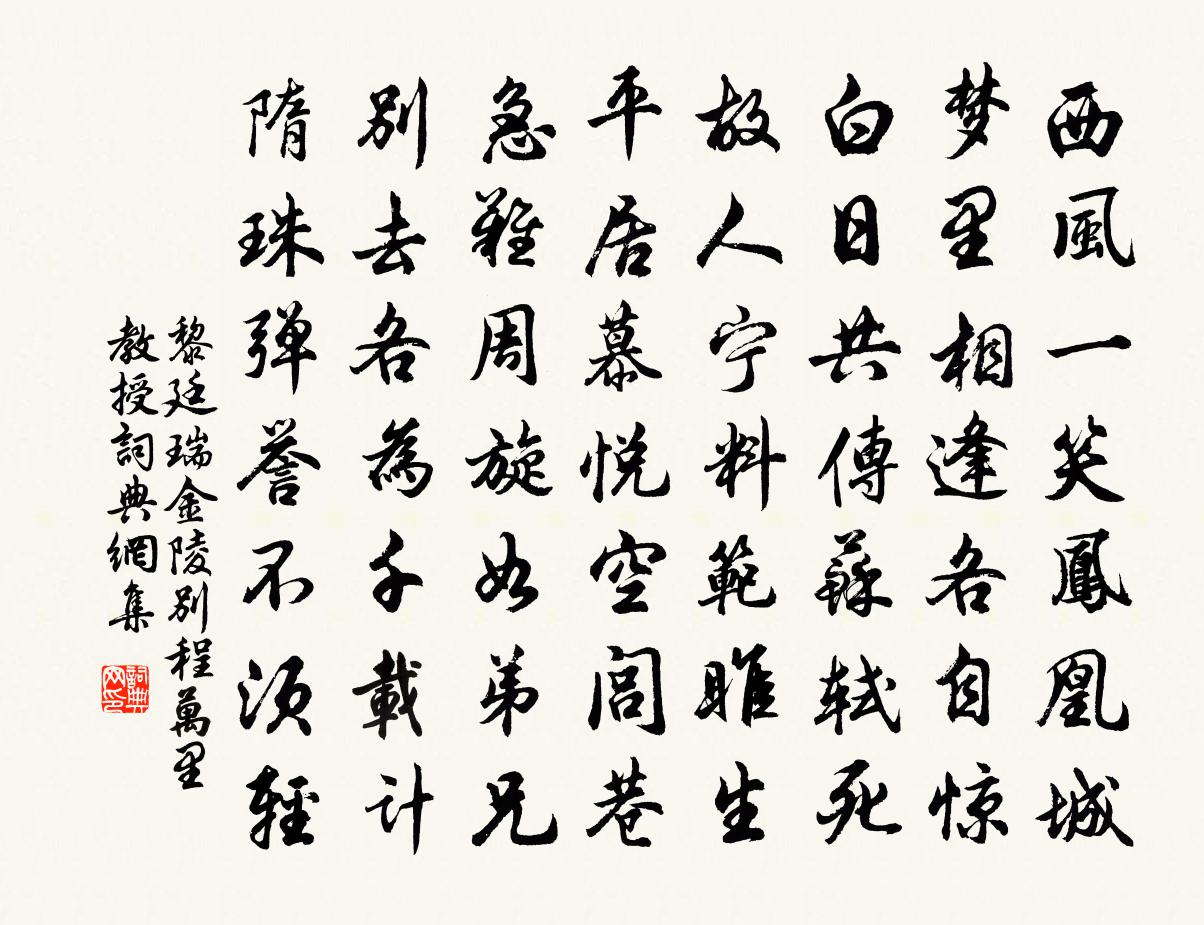 西風一笑鳳凰城
梦里相逢各自惊
白日共傳蘇軾死
故人宁料範睢生
平居慕悦空閭巷
急難周旋如弟兄
別去各為千載計
隋珠弹誉不须輕
黎廷瑞金陵別程萬里
教授詞典網集
詞典
网印